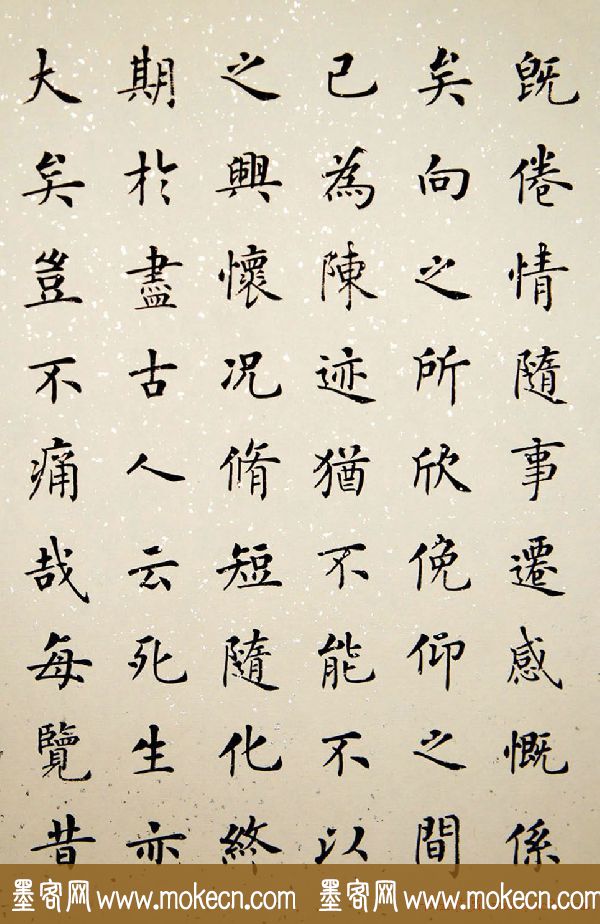 既倦情隨事遷感慨係
矣向之所欣俛仰之間
已為陳迹猶不能不以
之興懷况脩短隨化終
期於盡古人云死生亦
大矣豈不痛哉每覽昔
墨客网 www.mokecn.com 墨客网 www.mokecn.com